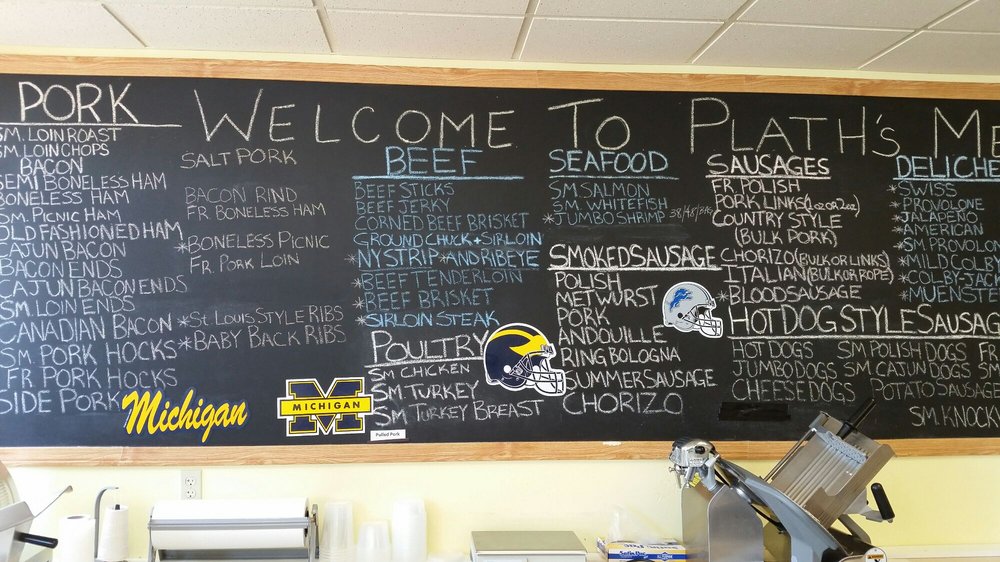 WELCOME TO PLATH'S ME
PORK
SM. LOIN ROAST
SM. LOIN CHOPS
BACON
SEMI BONELESS HAM
BONELESS HAM
SM. PICNIC HAM
OLD FASHIONED HAM
CAJUN BACON
BACON ENDS
CAJUN BACON ENDS
SM. LOIN ENDS
CANADIAN BACON
SM PORK HOCKS
FR. PORK HOCKS
SIDE PORK
SALT PORK
BACON RIND
FR. BONELESS HAM
*BONELESS PICNIC
FR. PORK LOIN
*ST. LOUIS STYLE RIBS
*BABY BACK RIBS
Michigan
MICHIGAN
Pulled Pork
BEEF
BEEF STICKS
BEEF JERKY
CORNED BEEF BRISKET
GROUND CHUCK + SIRLOIN
*NY STRIP *AND RIBEYE
*BEEF TENDERLOIN
*BEEF BRISKET
*SIRLOIN STEAK
POULTRY
SM CHICKEN
SM TURKEY
SM TURKEY BREAST
SEAFOOD
SM SALMON
SM. WHITEFISH
*JUMBO SHRIMP
SMOKED SAUSAGE
POLISH
METWURST
PORK
ANDOUILLE
RING BOLOGNA
SUMMER SAUSAGE
CHORIZO
SAUSAGES
FR. POLISH
PORK LINKS (1oz OR 2oz)
COUNTRY STYLE
(BULK PORK)
CHORIZO (BULK OR LINKS)
ITALIAN (BULK OR ROPE)
*BLOOD SAUSAGE
HOT DOG STYLE SAUSAG
HOT DOGS
JUMBO DOGS
CHEESE DOGS
SM POLISH DOGS
SM CAJUN DOGS
POTATO SAUSAG
SM. KNOCK
FR
DELI CHE
*SWISS
*PROVOLONE
*JALAPENO
*AMERICAN
*SM PROVOLON
*MILD COLBY
*COLBY-JACK
*MUENSTE